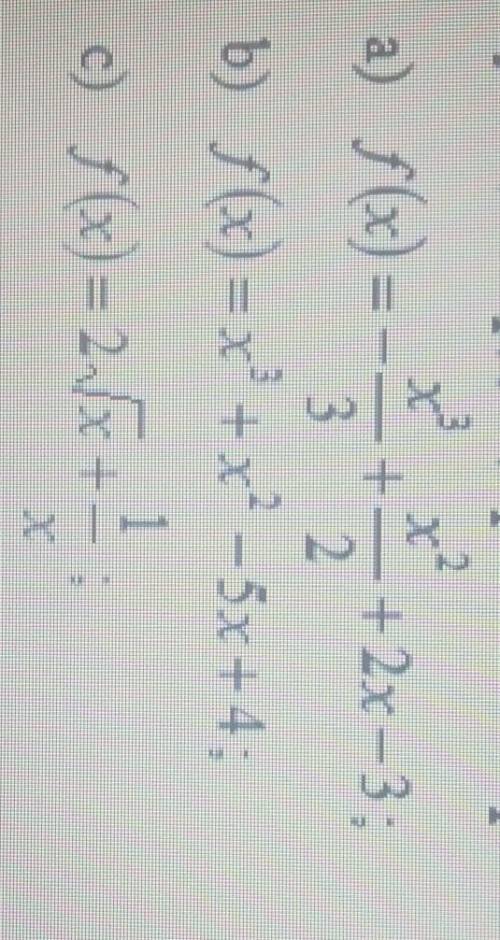 a) f(x) = -x³/3 + x²/2 + 2x - 3;
b) f(x) = x³ + x² - 5x + 4;
c) f(x) = 2√x + 1/x;